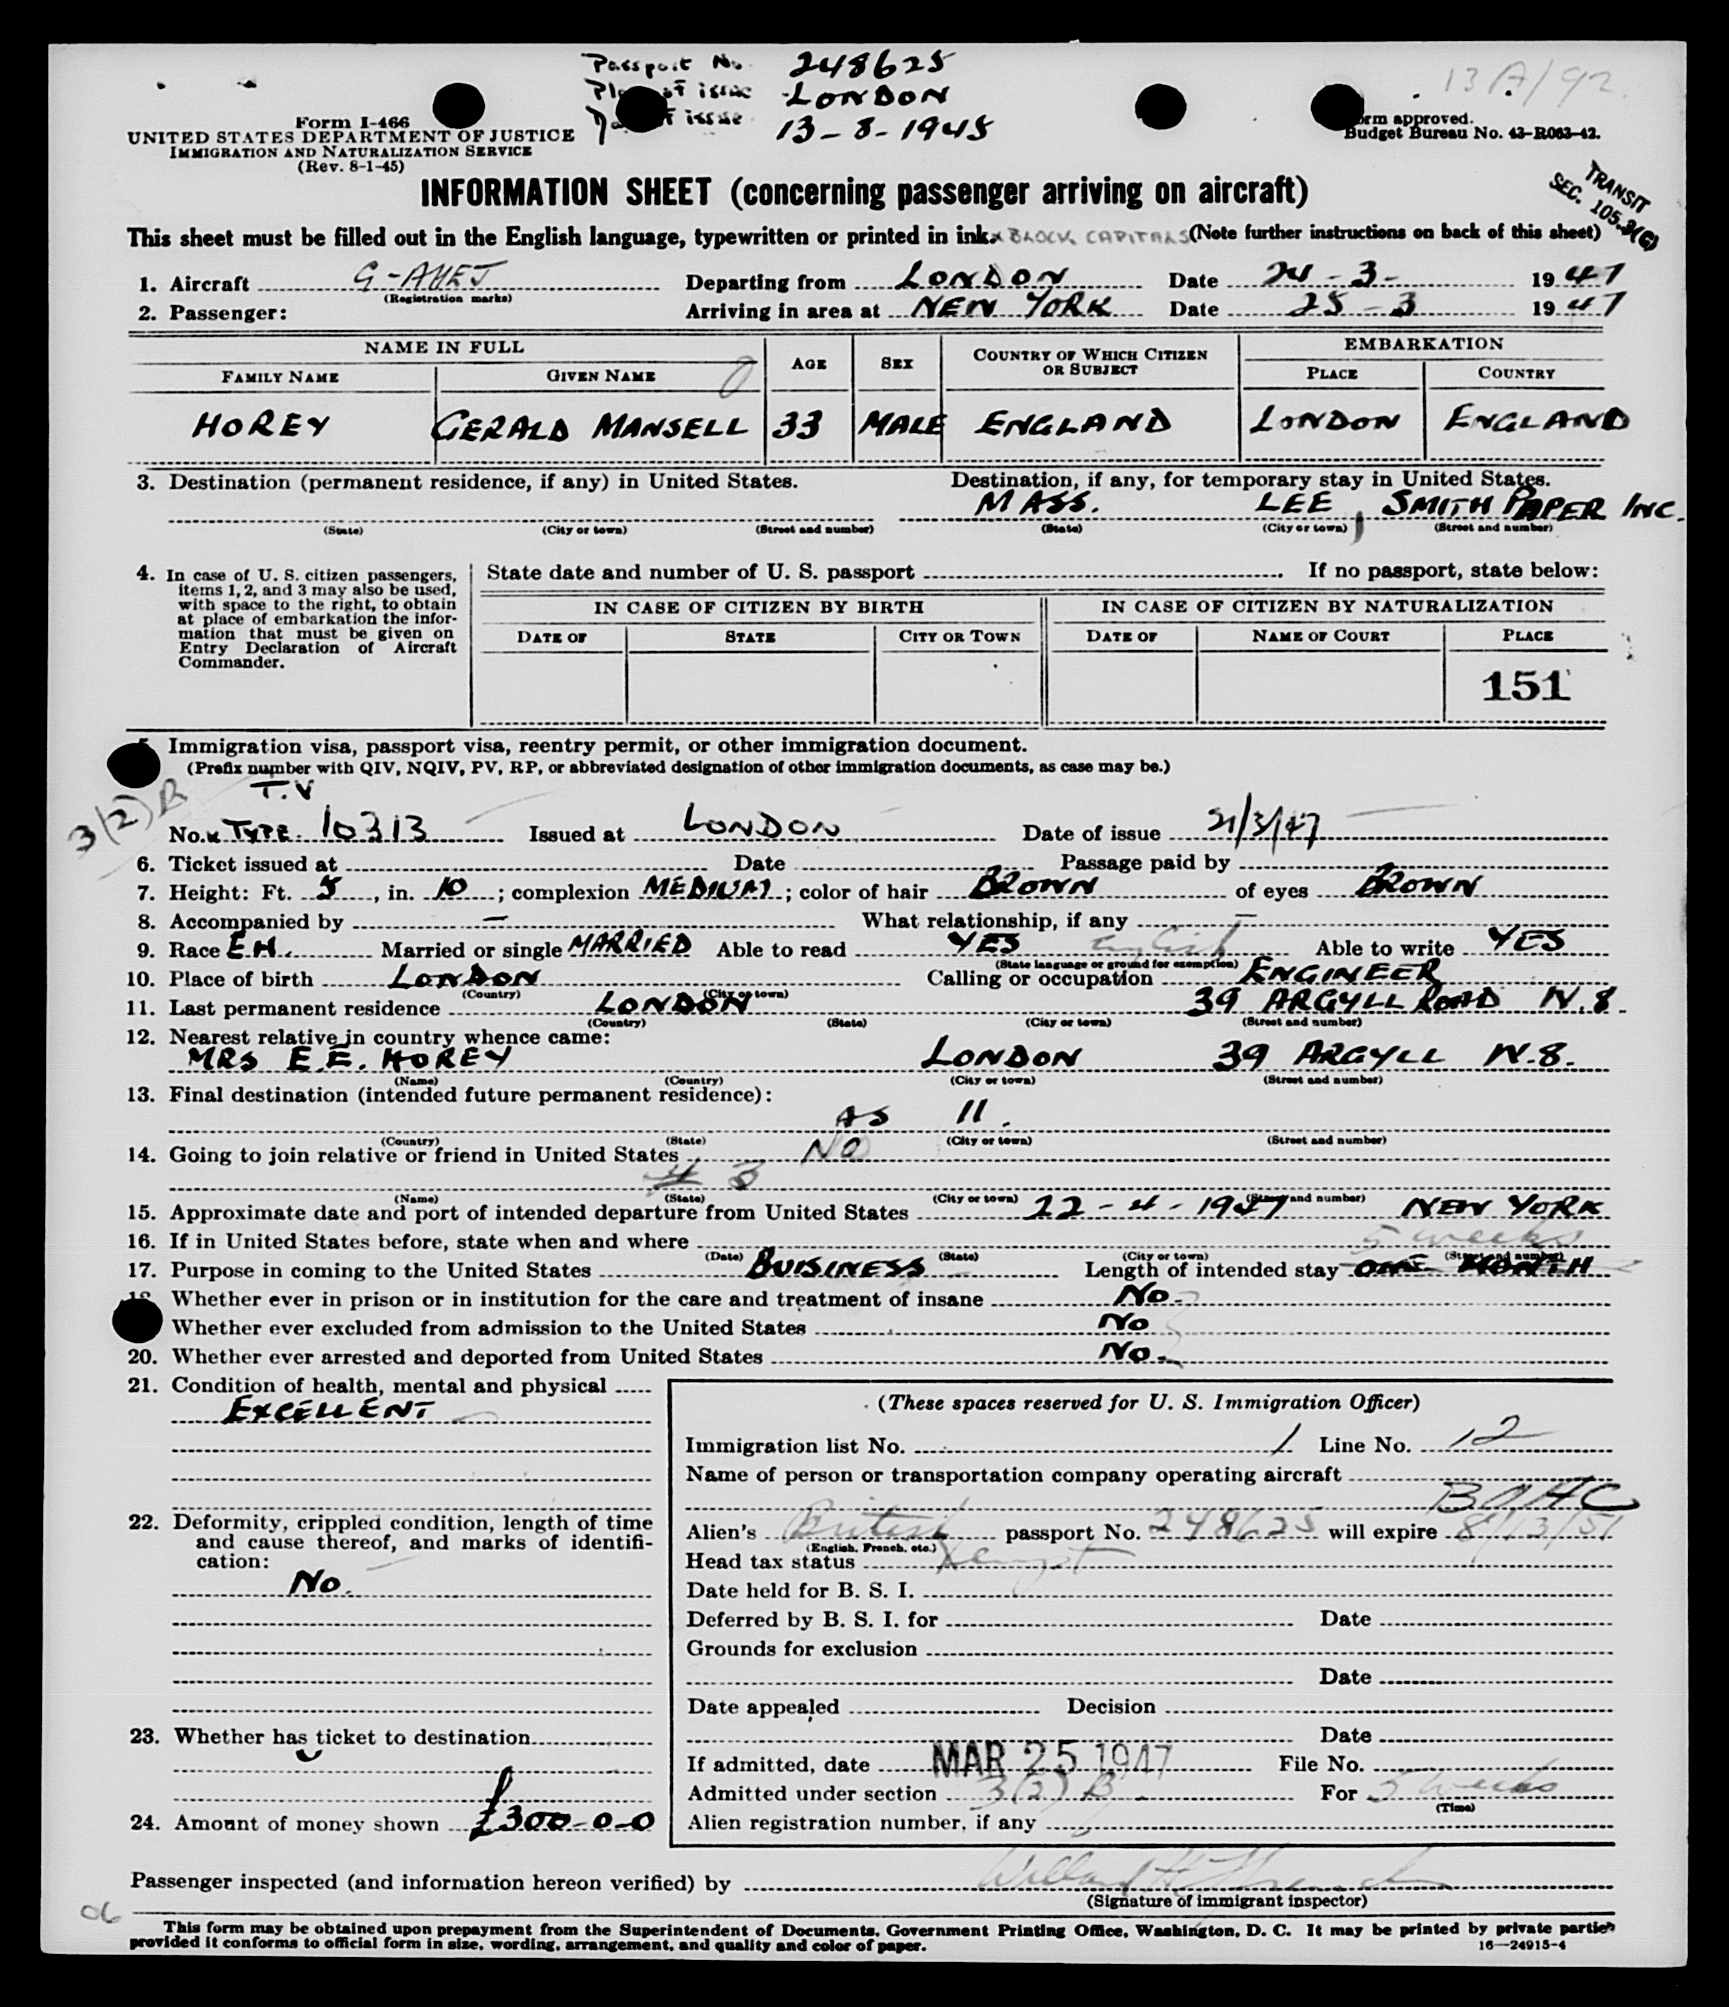 Passport No. 248625
Place of issue LONDON
Date of issue 13-8-1945
13 A/92.
Form I-466
UNITED STATES DEPARTMENT OF JUSTICE
IMMIGRATION AND NATURALIZATION SERVICE
(Rev. 8-1-45)
Form approved.
Budget Bureau No. 43-R063-42.
TRANSIT
SEC. 105.3(G)
INFORMATION SHEET (concerning passenger arriving on aircraft)
This sheet must be filled out in the English language, typewritten or printed in ink. x BLOCK CAPITALS (Note further instructions on back of this sheet)
1. Aircraft G-AHEJ Departing from LONDON Date 24-3- 1947
(Registration marks)
2. Passenger: Arriving in area at NEW YORK Date 25-3 1947
NAME IN FULL AGE SEX COUNTRY OF WHICH CITIZEN OR SUBJECT EMBARKATION
FAMILY NAME GIVEN NAME PLACE COUNTRY
HOREY GERALD MANSELL 33 MALE ENGLAND LONDON ENGLAND
3. Destination (permanent residence, if any) in United States. Destination, if any, for temporary stay in United States.
MASS. LEE, SMITH PAPER INC.
(State) (City or town) (Street and number) (State) (City or town) (Street and number)
4. In case of U. S. citizen passengers, items 1, 2, and 3 may also be used, with space to the right, to obtain at place of embarkation the information that must be given on Entry Declaration of Aircraft Commander.
State date and number of U. S. passport . If no passport, state below:
IN CASE OF CITIZEN BY BIRTH IN CASE OF CITIZEN BY NATURALIZATION
DATE OF STATE CITY OR TOWN DATE OF NAME OF COURT PLACE
151
5. Immigration visa, passport visa, reentry permit, or other immigration document.
(Prefix number with QIV, NQIV, PV, RP, or abbreviated designation of other immigration documents, as case may be.)
3(2)B
T.V
No. TYPE. 10313 Issued at LONDON Date of issue 21/3/47
6. Ticket issued at Date Passage paid by
7. Height: Ft. 5, in. 10; complexion MEDIUM; color of hair BROWN of eyes BROWN
8. Accompanied by — What relationship, if any —
9. Race EH. Married or single MARRIED Able to read YES English Able to write YES
(State language or ground for exemption)
10. Place of birth LONDON Calling or occupation ENGINEER
(Country) (City or town)
11. Last permanent residence LONDON 39 ARGYLL ROAD W.8.
(Country) (State) (City or town) (Street and number)
12. Nearest relative in country whence came:
MRS E.E. HOREY LONDON 39 ARGYLL W.8.
(Name) (Country) (City or town) (Street and number)
13. Final destination (intended future permanent residence):
AS 11.
(Country) (State) (City or town) (Street and number)
14. Going to join relative or friend in United States NO
# 3
(Name) (State) (City or town) (Street and number)
15. Approximate date and port of intended departure from United States 22-4-1947 NEW YORK
16. If in United States before, state when and where
5 weeks
(Date) (State) (City or town) (Street and number)
17. Purpose in coming to the United States BUISINESS Length of intended stay ONE MONTH
18. Whether ever in prison or in institution for the care and treatment of insane NO.
Whether ever excluded from admission to the United States NO
20. Whether ever arrested and deported from United States NO.
21. Condition of health, mental and physical
EXCELLENT
22. Deformity, crippled condition, length of time and cause thereof, and marks of identification:
NO.
23. Whether has ticket to destination
24. Amount of money shown £300-0-0
(These spaces reserved for U. S. Immigration Officer)
Immigration list No. 1 Line No. 12
Name of person or transportation company operating aircraft
BOAC
Alien's British passport No. 248625 will expire 8/13/51
(English, French, etc.)
Head tax status Exempt
Date held for B. S. I.
Deferred by B. S. I. for Date
Grounds for exclusion
Date
Date appealed Decision
Date
If admitted, date MAR 25 1947 File No.
Admitted under section 3(2) B For 5 weeks
(Time)
Alien registration number, if any
Passenger inspected (and information hereon verified) by
(Signature of immigrant inspector)
This form may be obtained upon prepayment from the Superintendent of Documents, Government Printing Office, Washington, D. C. It may be printed by private parties
provided it conforms to official form in size, wording, arrangement, and quality and color of paper.
16—24915-4